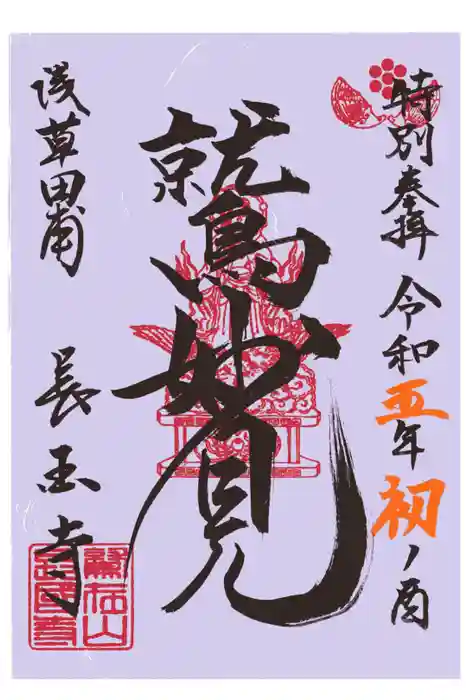 特別奉拝 令和五年初ノ酉
鷲妙見
浅草田甫 長国寺
鷲在山
長國寺